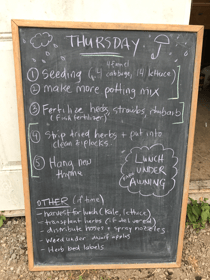 THURSDAY
① Seeding (4 cabbage, 14 lettuce)
② make more potting mix
③ Fertilize herbs, strawbs, rhubarb
(fish fertilizer)
④ Strip dried herbs + put into
clean ziplocks
⑤ Hang new
thyme
LUNCH
UNDER
AWNING
OTHER (if time)
- harvest for lunch (Kale, lettuce)
- transplant herbs
- distribute hoses + spray nozzles
- Weed under dwarf apples
- Herb bed labels